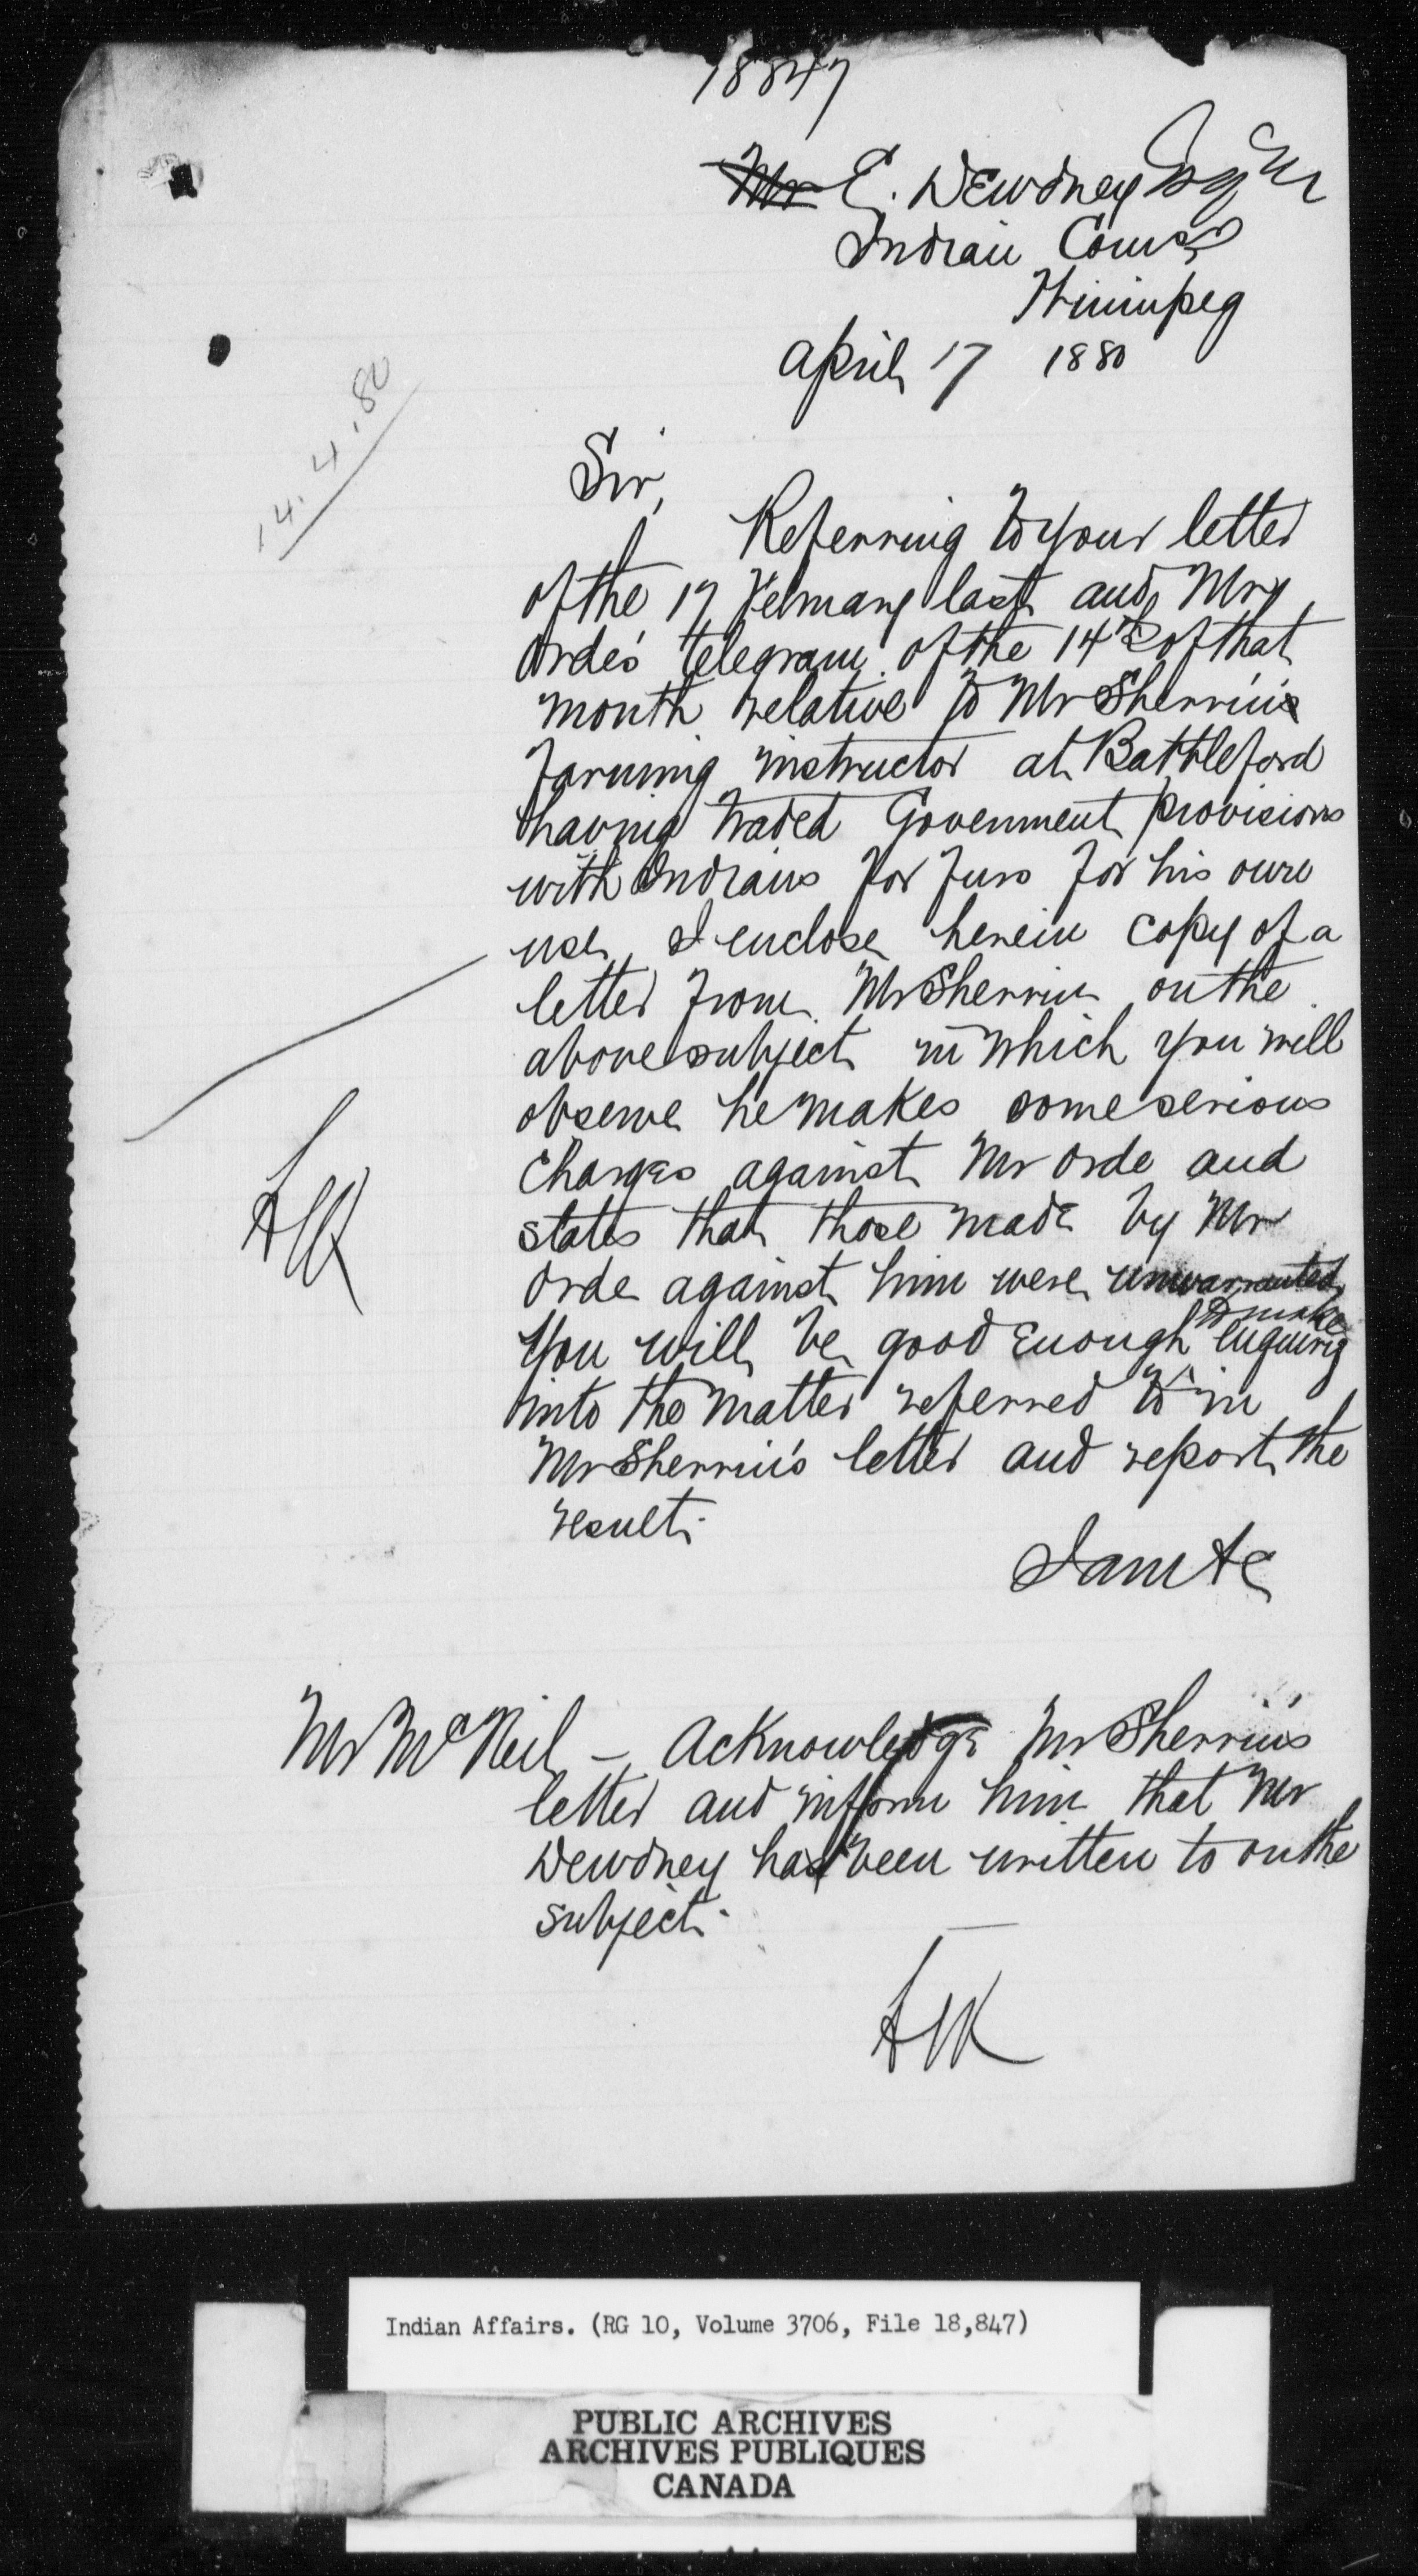 18847
Mr E. Dewdney Esqre
Indian Comr
Winnipeg
April 17 1880
14.4.80
Sir,
Referring to your letter
of the 17 February last and Mr
Orde's telegram of the 14th of that
month relative to Mr Sherrin's
farming instructor at Battleford
having traded Government provisions
with Indians for furs for his own
use, I enclose herein copy of a
letter from Mr Sherrin on the
above subject in which you will
observe he makes some serious
charges against Mr Orde and
states that those made by Mr
Orde against him were unwarranted
to make
You will be good enough enquiry
into the matter referred to in
Mr Sherrin's letter and report the
result.
I am &c
Mr McNeil - Acknowledge Mr Sherrin's
letter and inform him that Mr
Dewdney has been written to on the
subject.
Indian Affairs. (RG 10, Volume 3706, File 18,847)
PUBLIC ARCHIVES
ARCHIVES PUBLIQUES
CANADA